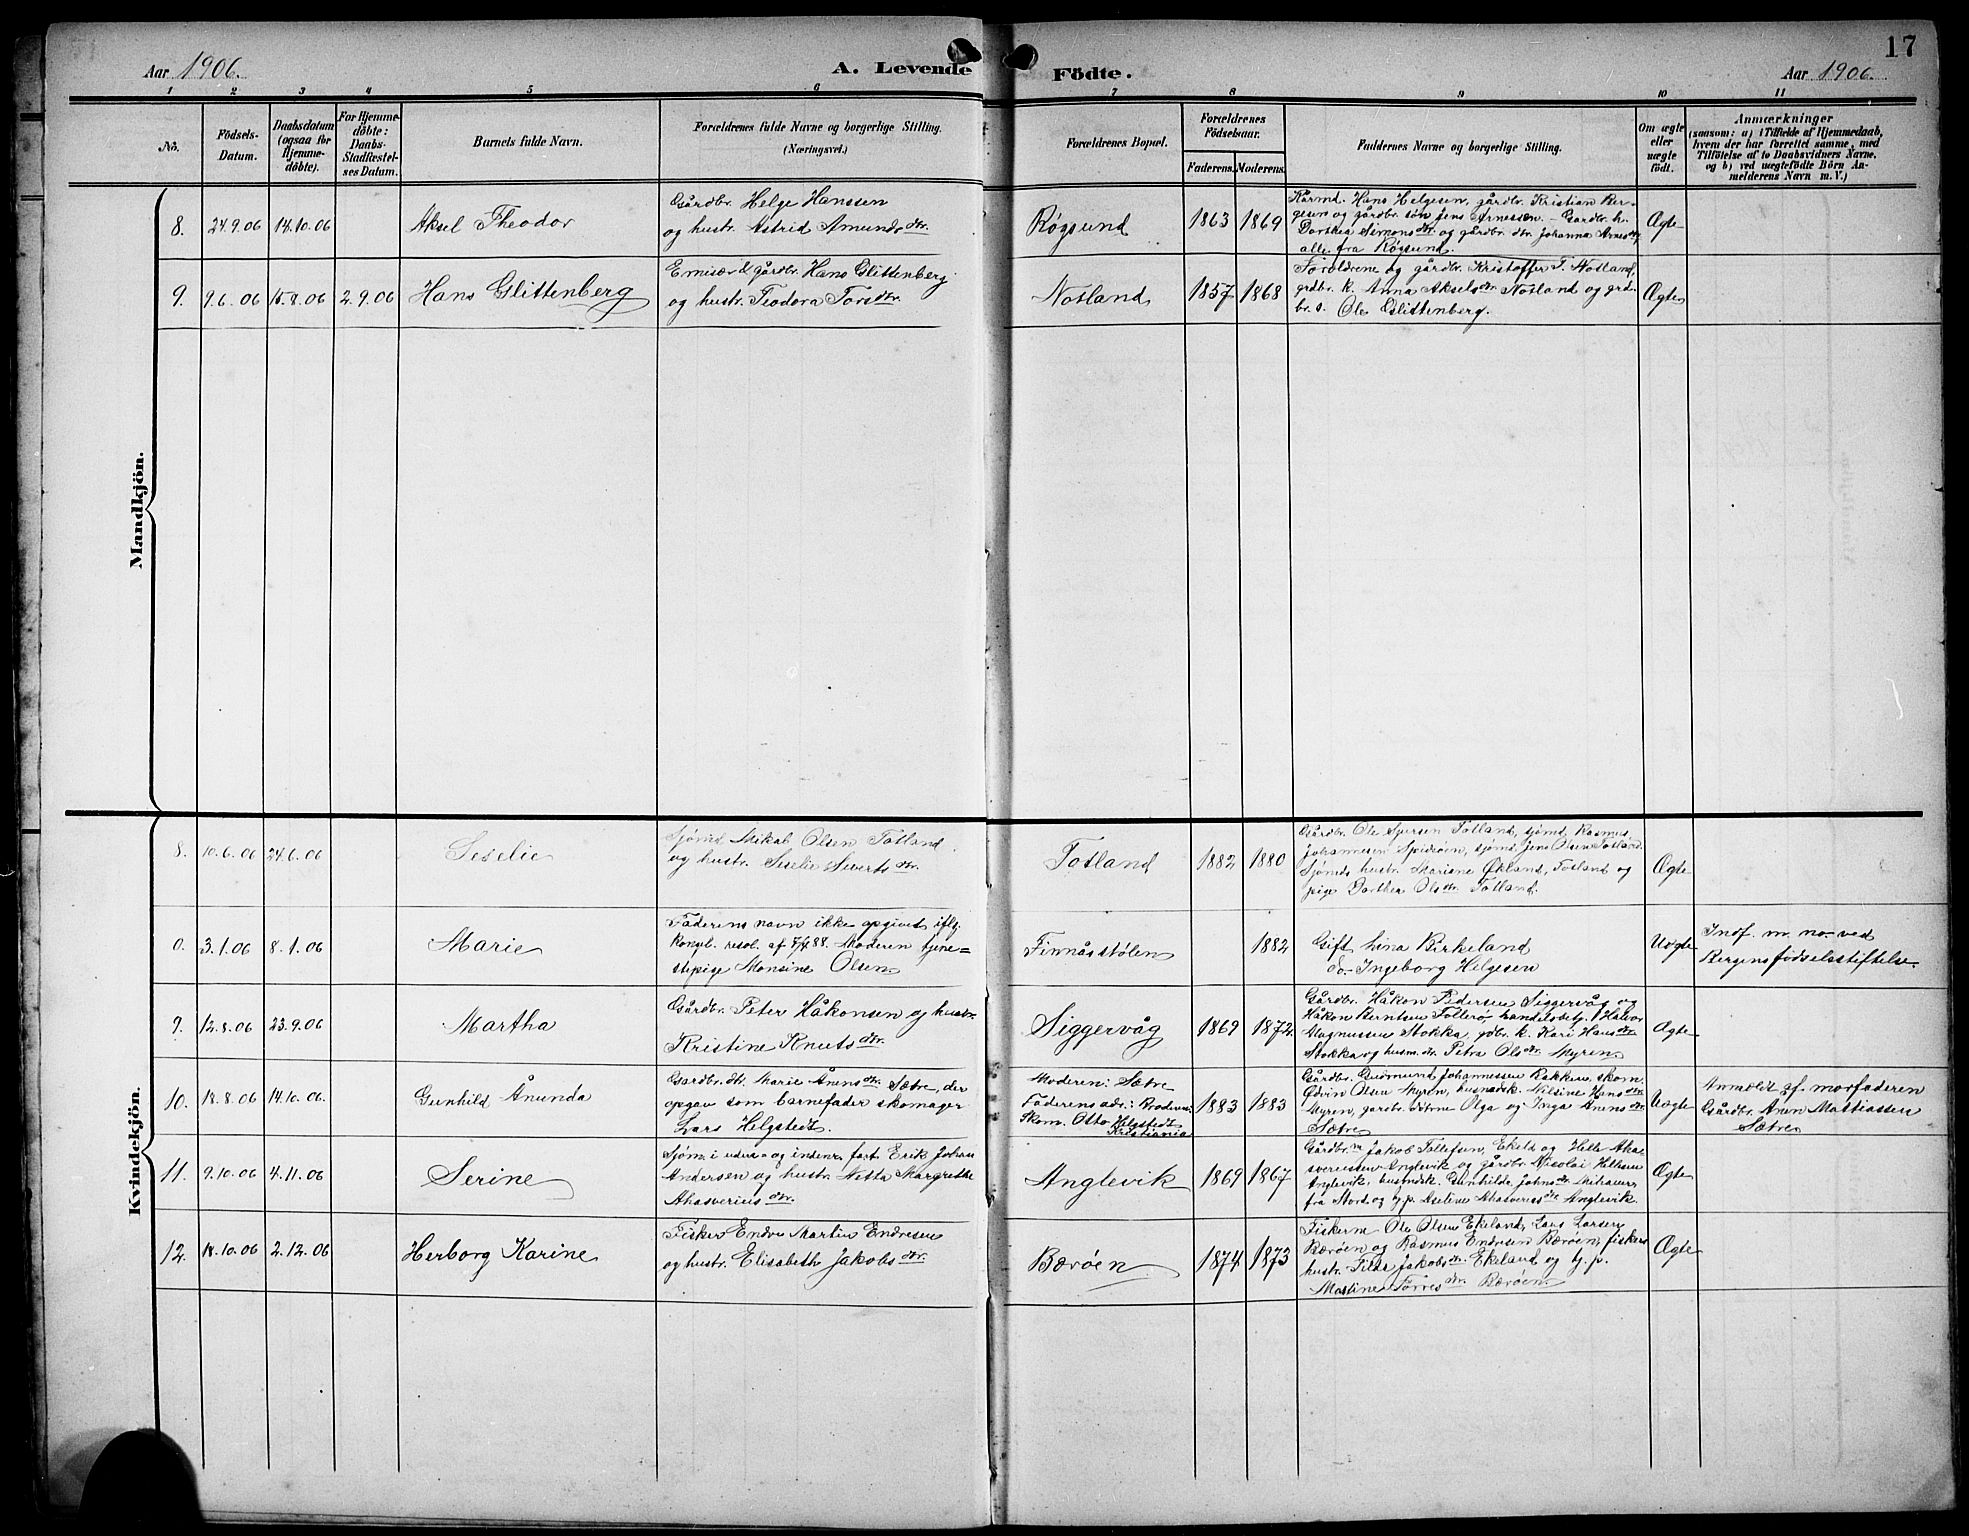 17
Aar 1906.
A. Levende Födte.
Aar 1906.
1 2 3 4 5 6 7 8 9 10 11
No.
Födsels-Datum.
Daabsdatum (ogsaa for Hjemme-döbte).
For Hjemme-döbte: Daabs-Stadfæstel-ses Datum.
Barnets fulde Navn.
Forældrenes fulde Navne og borgerlige Stilling.
(Næringsvei.)
Forældrenes Bopæl.
Forældrenes Födselsaar.
Faderens. Moderens.
Faddernes Navne og borgerlige Stilling.
Om ægte eller uægte födt.
Anmærkninger
(saasom: a) i Tilfælde af Hjemmedaab, hvem der har forrettet samme, med Tilföielse af to Daabsvidners Navne, og b) ved uægtefödte Börn An-melderens Navn m. V.)
Mandkjön.
8. 24.9.06 14.10.06 Aksel Theodor
Gårdbr. Helge Hanssen
og hustr. Astrid Amundsdtr.
Røgsund 1863 1869
Hans Helgesen, gårdbr. Kristian Ber-
gesen og gårdbr. søn Jens Arnessen. – Gardbr. h.
Dorthea Simonsdtr og gårdbr. dtr. Johanna Arnesdtr,
alle fra Røgsund.
Ægte
9. 9.6.06 15.8.06 2.9.06 Hans Glittenberg
Emisær & gårdbr. Hans Glittenberg
og hustr. Teodora Toresdtr.
Notland 1857 1868
Forældrene og gårdbr. Kristoffer T. Notland,
grdbr. k. Anna Akselsdtr Notland og grd-
br. s. Ole Glittenberg.
Ægte
Kvindekjön.
8. 10.6.06 24.6.06 Seselie
Sjømd. Mikal Olsen Totland
og hustr. Seselie Sivertsdtr.
Totland 1882 1880
Gårdbr. Ole Totland, sjømd. Rasmus
Johannesen Spidsöen, sjømd. Jens Olsen Totland.
Sjømds hustr. Mariane Økland, Totland og
pige Dorthea Olsdtr. Totland.
Ægte
0. 3.1.06 8.1.06 Marie
Faderens navn ikke opgivet iflg.
Kongel. resol. af Moderen tjene-
stepige Monsine Olsen
Finnåsstølen 1882
Gift Lina Birkeland
do– Ingeborg Helgesen
Uægte
Indf. m. no– ved
Bergens födselsstiftelse.
9. 12.8.06 23.9.06 Martha
Gårdbr. Peter Håkonsen og hustr.
Kristine Knutsdtr.
Siggervåg 1869 1872.
Gårdbr. Håkon Pedersen Siggervåg og
Håkon Berntsen Tollerø, handelsbetj. Halvor
Magnussen Stokka, gdbr. k. Kari Hansdtr
Stokka og husm. dtr. Petra Olsdtr Myren
Ægte
10. 18.8.06 14.10.06. Gunhild Ånunda
Gardbr. dtr. Marie Ånensdtr. Sætre, der
opgav som barnefader skomager
Lars Helgstedt.
Moderen: Sætre
Faderens adr.: Broderen
Skom. Otto Helgstedt
Kristiania
1883 1883
Gårdbr. Gudmund Johannessen Bakken, skom.
Edvin Olsen Myren, Nilsine Hansdtr
Myren, gardbr. døtrne Olga og Inga Anensdtr
Sætre
Uægte
Anmeldt af morfaderen
Gårdbr. Anen Mattiassen
Sætre
11. 9.10.06 4.11.06 Serine
Sjøm. i uden- og indenr. fart Erik Johan
Andersen og hustr. Netta Margrethe
Ahasveriusdtr.
Anglevik 1869 1867
Gårdbr. Jakob Tollefsen, Ekeld og Helle Aha-
sveriussen Anglevik og gårdbr. Nikolai Hellesen
Anglevik, Gunhilda Johnsdtr
fra Stord og tj. p. Aseline Ahasveriusdtr Anglevik.
Ægte
12. 18.10.06 2.12.06 Herborg Karine
Fisker Endre Martin Endresen
og hustr. Elisabeth Jakobsdtr.
Bærøen 1874 1873
Fiskerm. Ole Olsen Ekeland, Lars Larsen
Bærøen og Rasmus Endresen Bærøen, fiskers
hustr. Jakobsdtr. Ekeland og tj. p.
Mastine Tørresdtr. Bærøen
Ægte